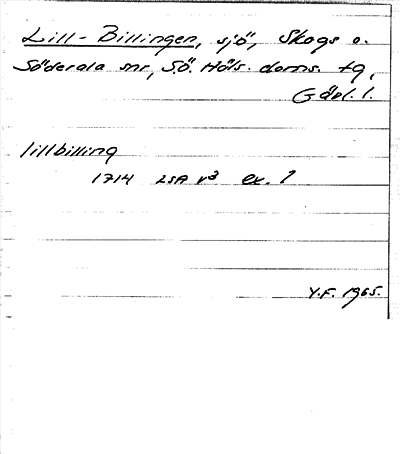 Lill-Billingen, sjö, Skogs o.
Söderala snr, Sö. Häls. doms. tg,
Gävl. l.
lillbilling
1714 LSA v³ ex. 1
Y.F. 1965.